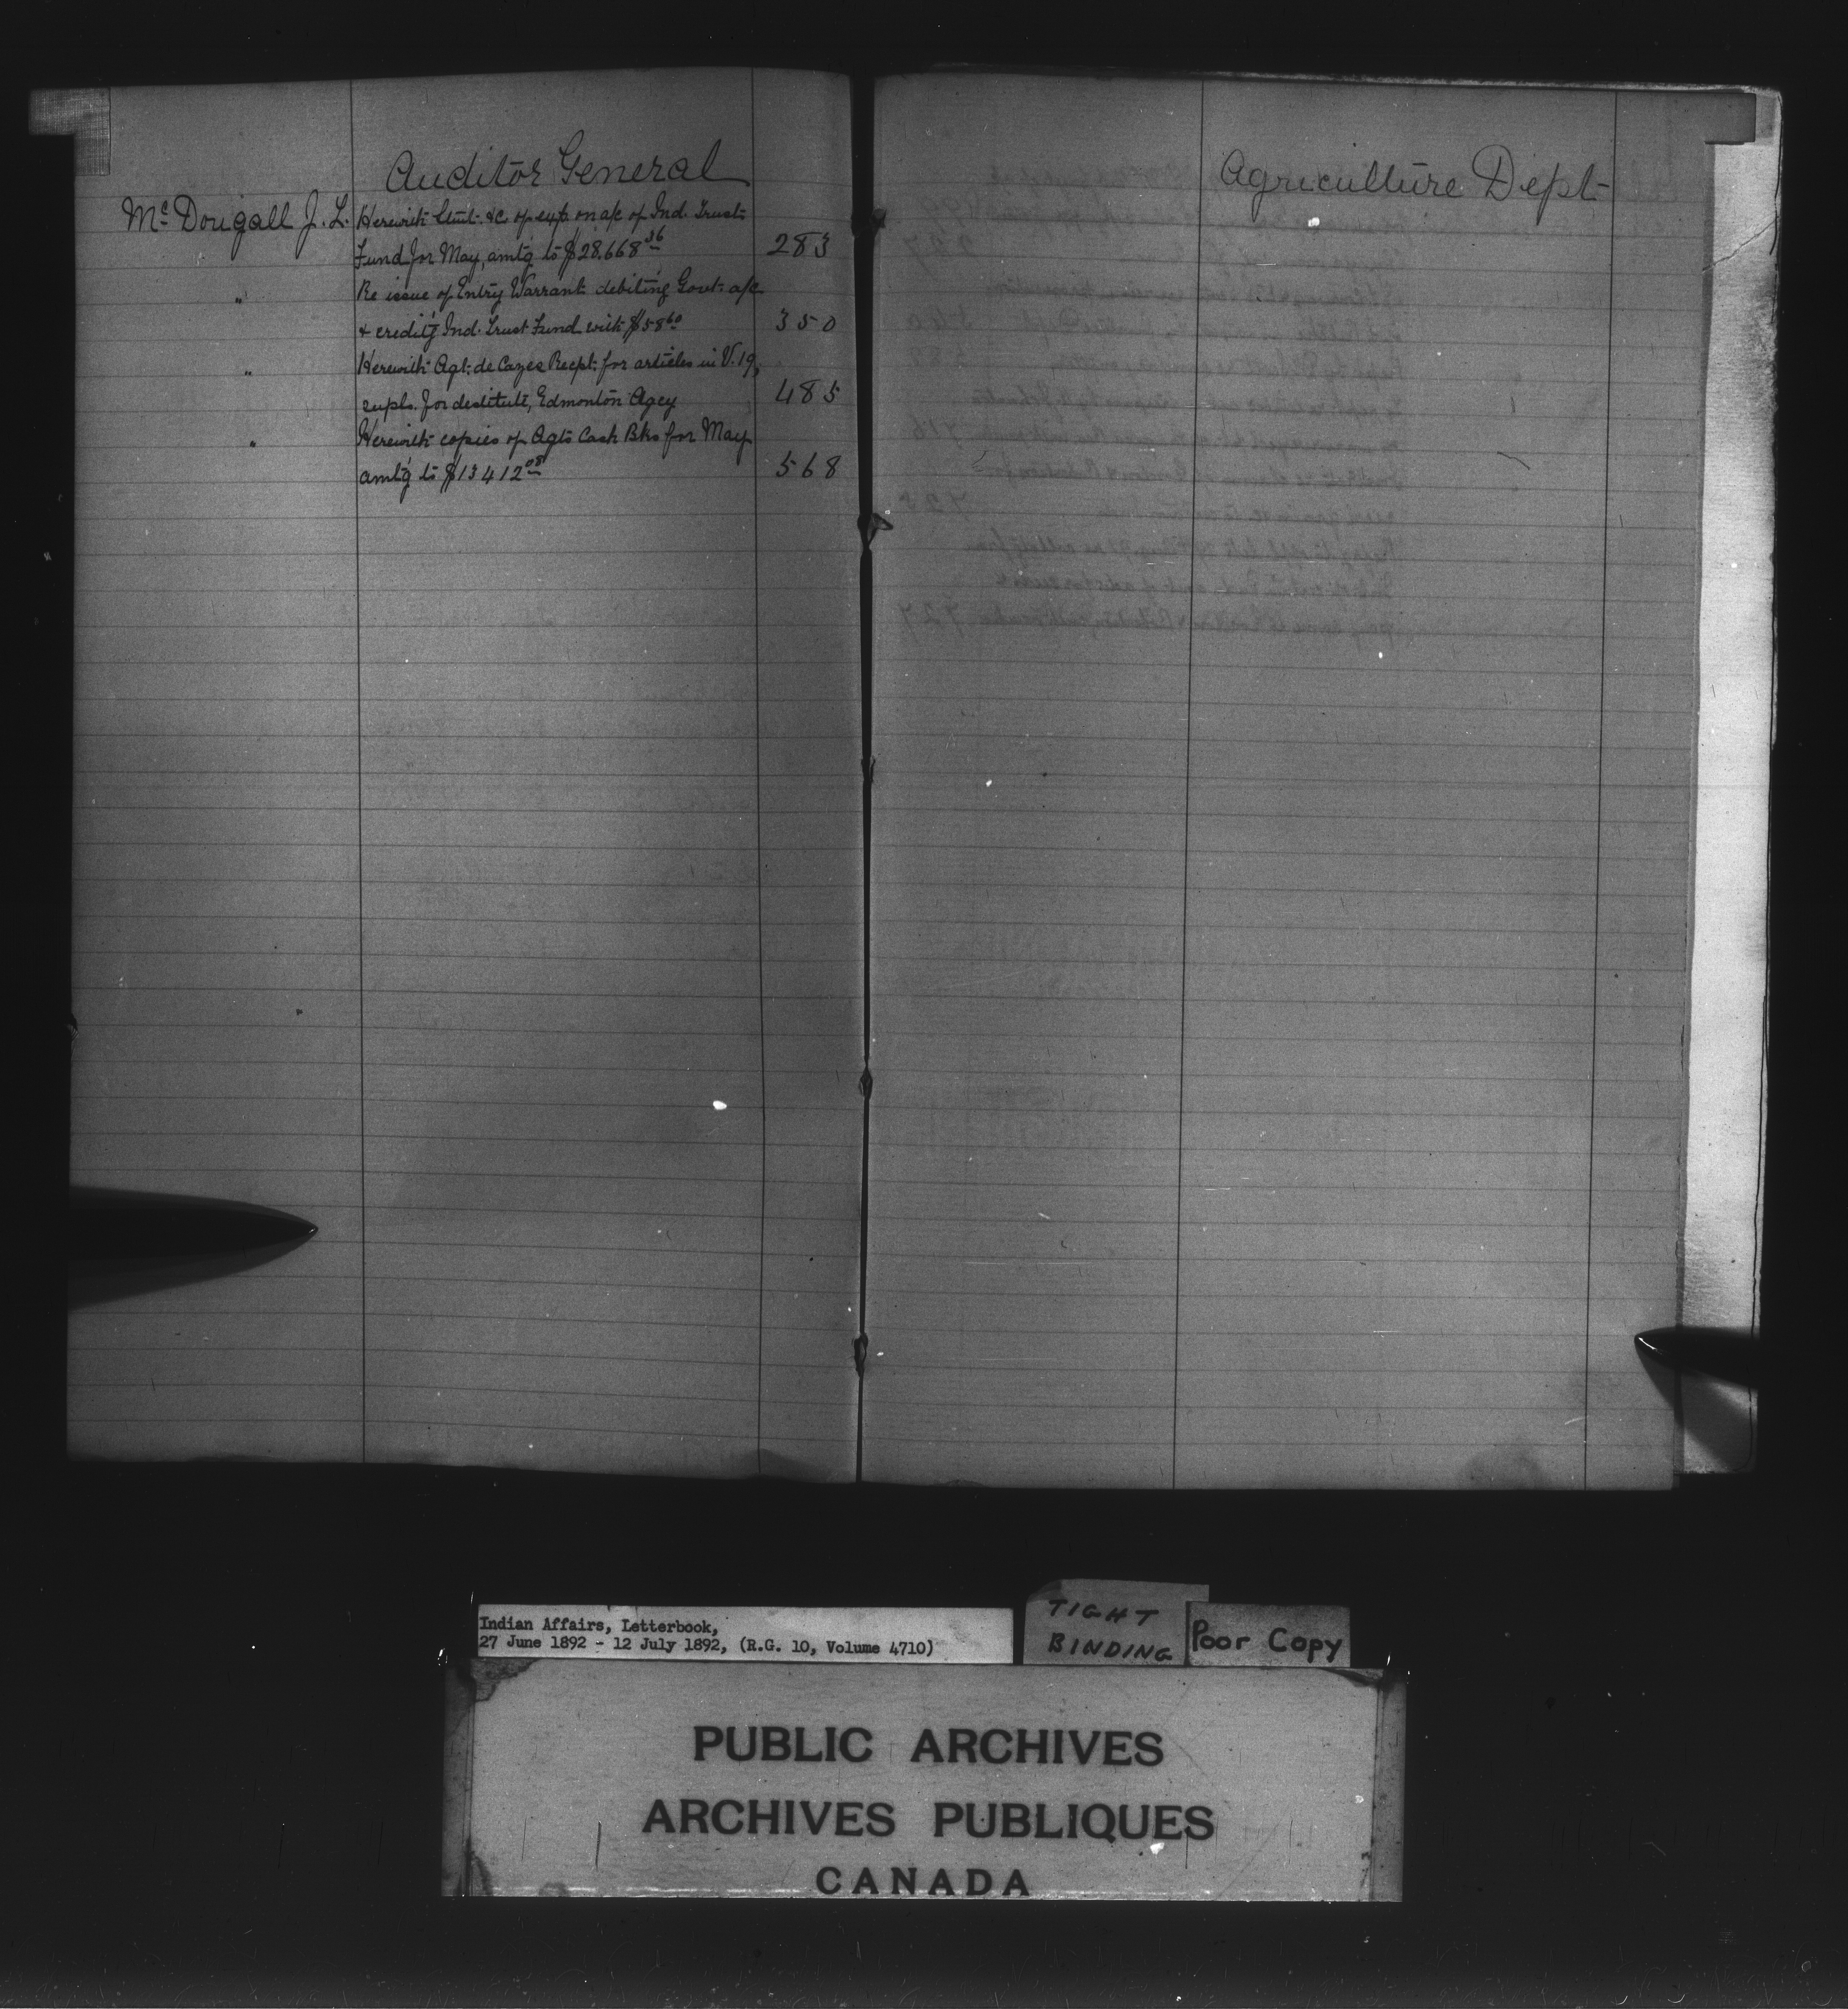 Auditor General
McDougall J. L. Herewith Stmt. &c. of exp. on a/c of Ind. Trust
Fund for May, amtg to $28.668 36 283
" Re issue of Entry Warrant debiting Govt. a/c
& creditg Ind. Trust Fund with $58 60 350
" Herewith Agt. de Cazes Recpt. for articles in V. 19,
supls. for destitute, Edmonton Agcy 485
" Herewith copies of Agts Cash Bks for May
amtg to $13412 08 568
Agriculture Dept
Indian Affairs, Letterbook,
27 June 1892 - 12 July 1892, (R.G. 10, Volume 4710)
TIGHT
BINDING
Poor Copy
PUBLIC ARCHIVES
ARCHIVES PUBLIQUES
CANADA